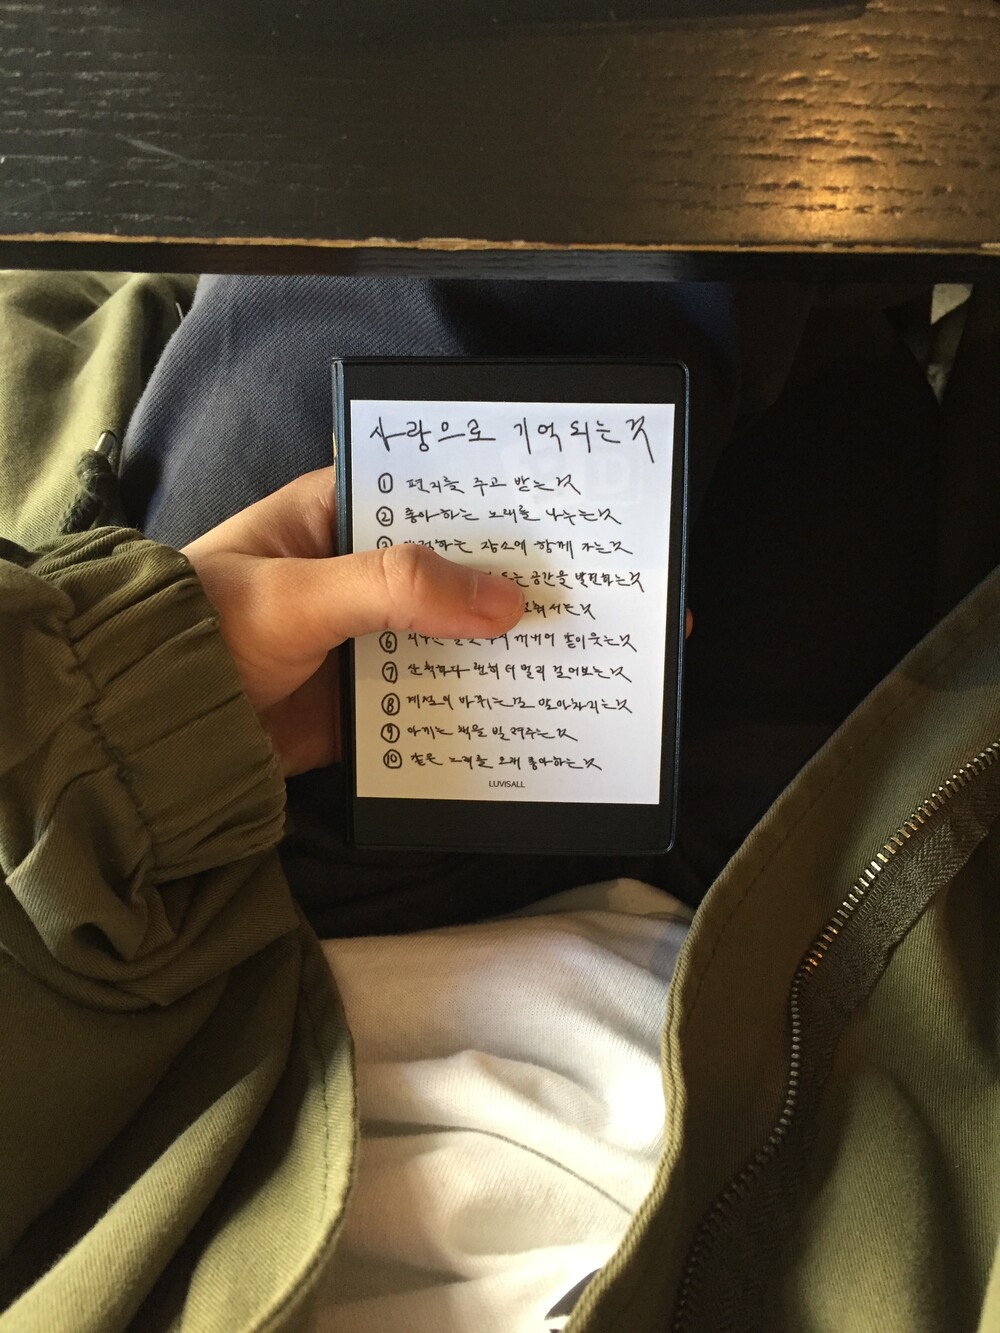 사랑으로 기억되는 것
① 편지를 주고 받는 것
② 좋아하는 노래를 나누는 것
하는 장소에 함께 가는 것
드는 공간을 발견하는 것
서는 것
⑥ 꺼내어 같이 웃는 것
⑦ 산책하다 괜히 더 멀리 걸어보는 것
⑧ 계절이 바뀌는 걸 알아차리는 것
⑨ 아끼는 책을 빌려주는 것
⑩ 같은 노래를 오래 좋아하는 것
LUVISALL